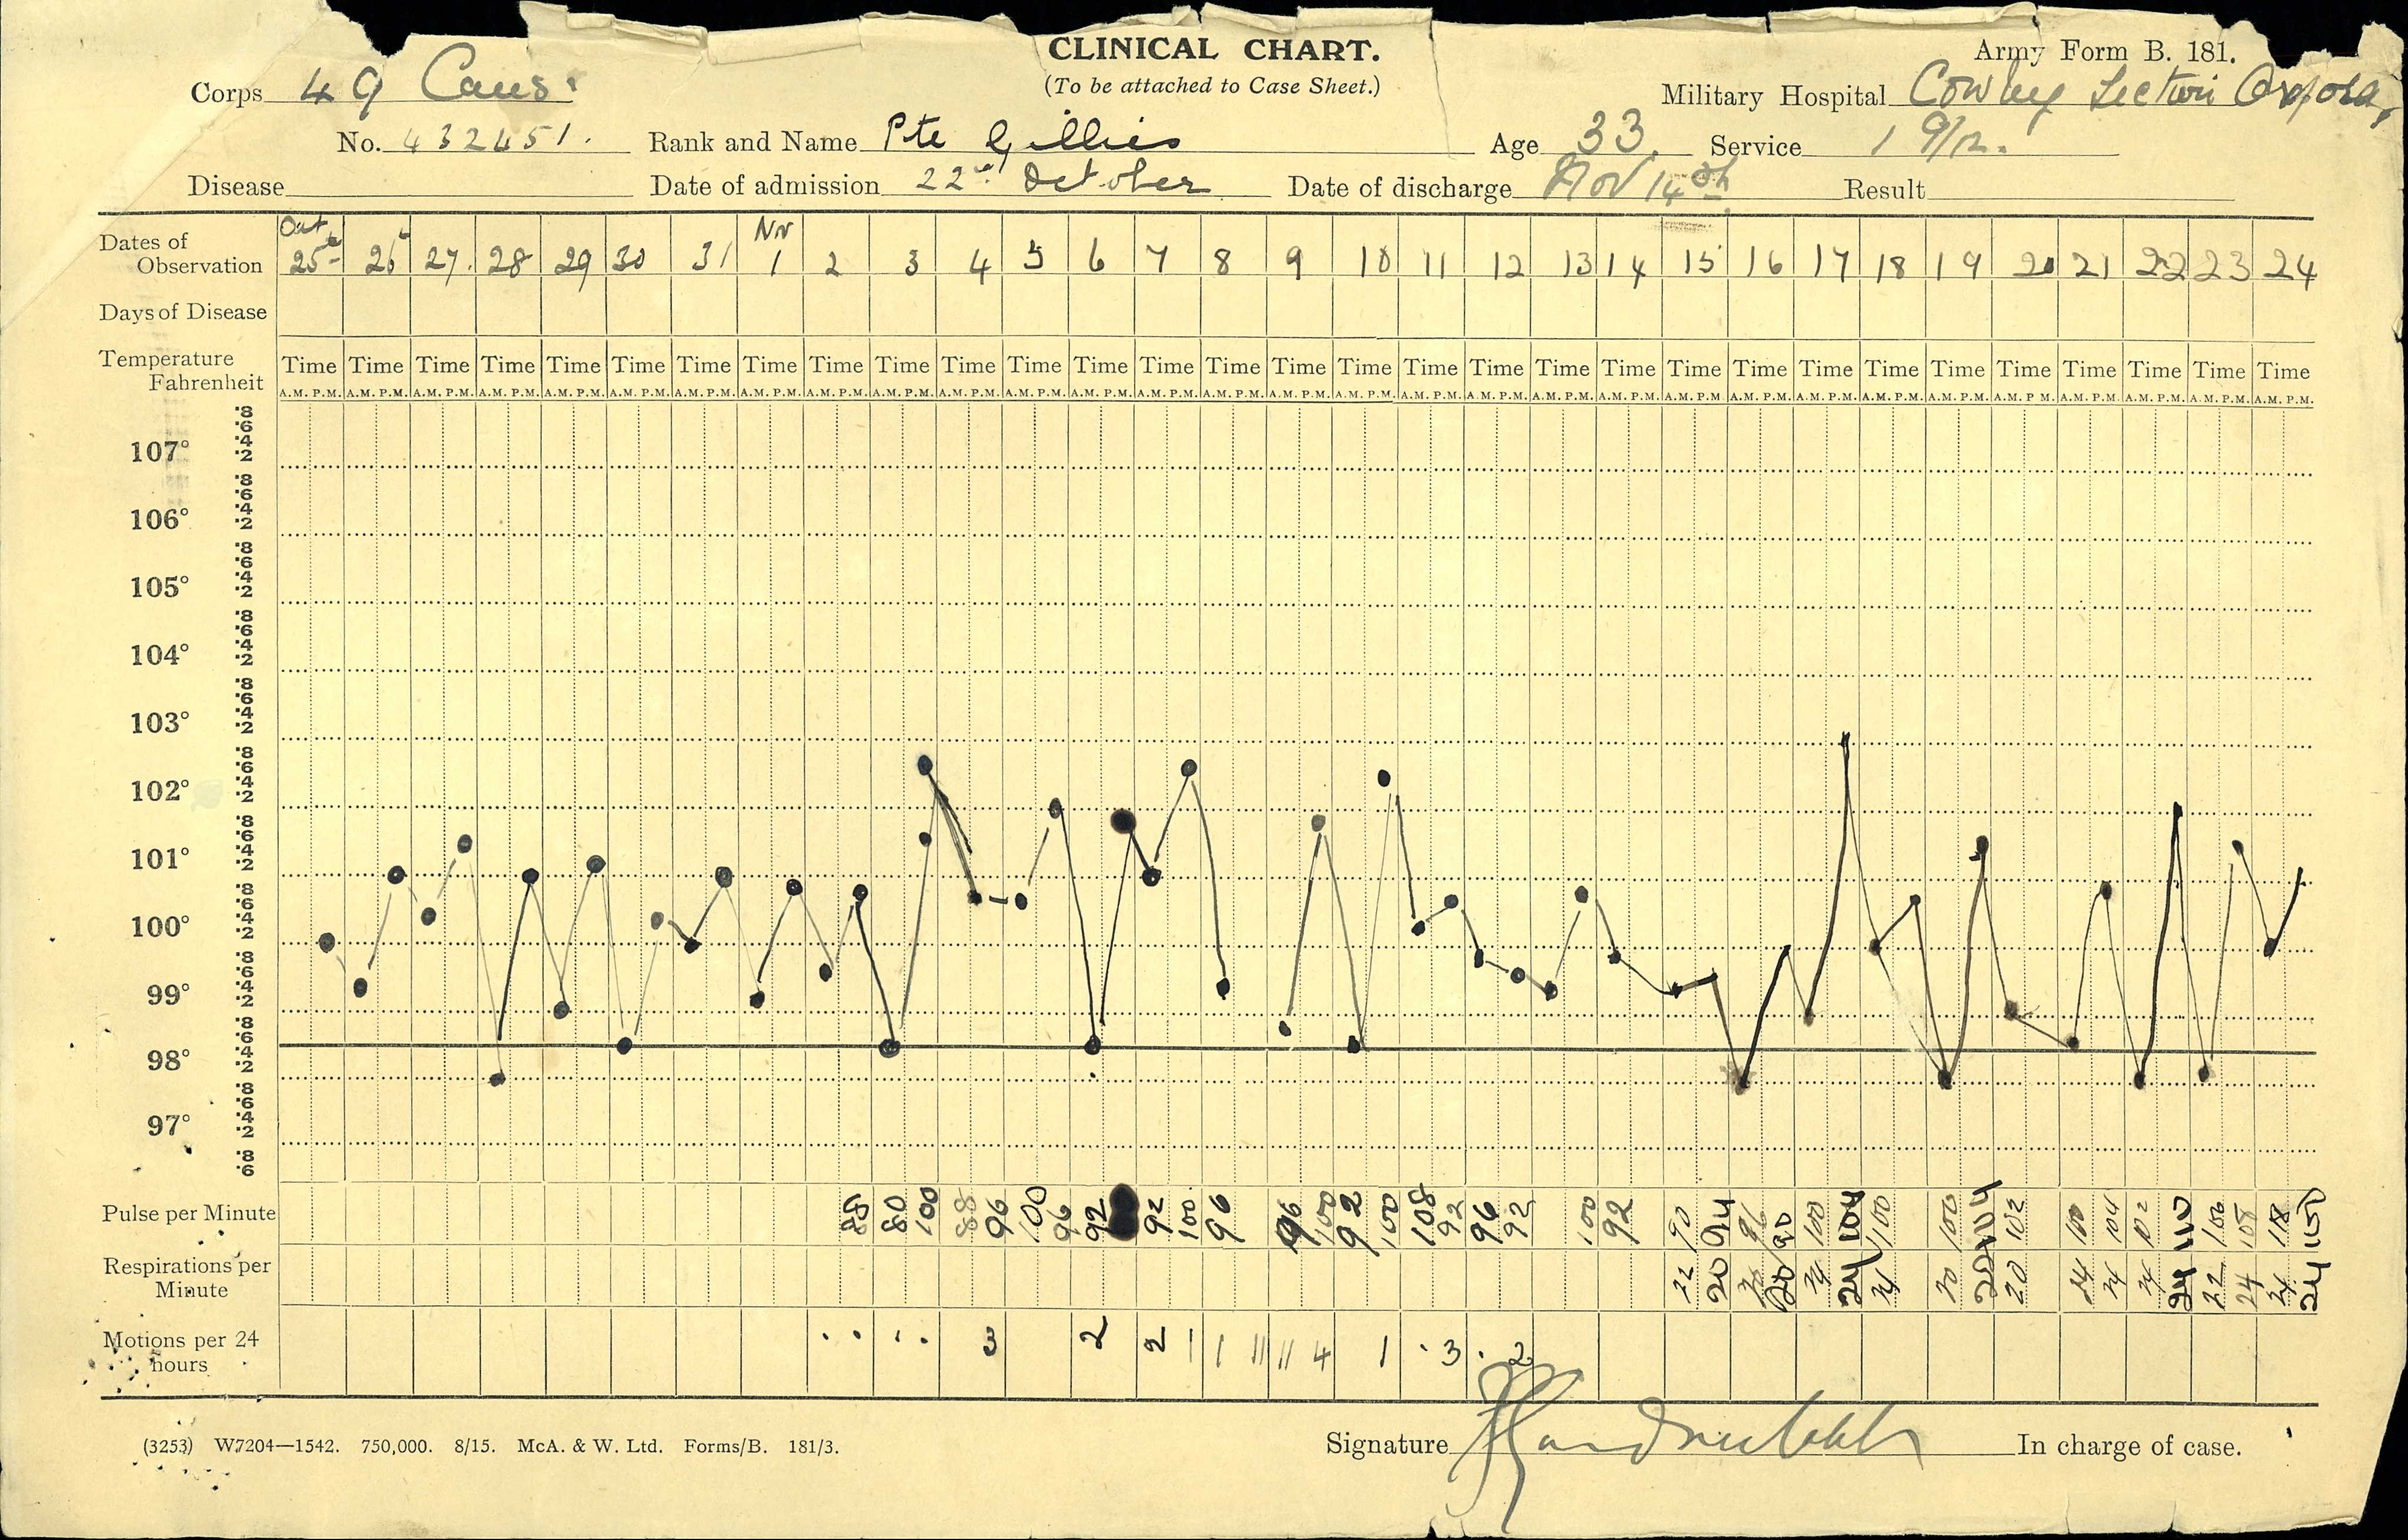 CLINICAL CHART.
(To be attached to Case Sheet.)
Army Form B. 181.
Corps 49 Cans.
Military Hospital Cowley Section Oxford,
No. 432451. Rank and Name Pte Gillies Age 33 Service 1 9/12.
Disease Date of admission 22nd October Date of discharge Nov 14th Result
Dates of Observation Oct 25th 26th 27. 28 29 30 31 Nov 1 2 3 4 5 6 7 8 9 10 11 12 13 14 15 16 17 18 19 20 21 22 23 24
Days of Disease
Temperature Fahrenheit
Time Time Time Time Time Time Time Time Time Time Time Time Time Time Time Time Time Time Time Time Time Time Time Time Time Time Time Time Time Time Time
A.M. P.M. A.M. P.M. A.M. P.M. A.M. P.M. A.M. P.M. A.M. P.M. A.M. P.M. A.M. P.M. A.M. P.M. A.M. P.M. A.M. P.M. A.M. P.M. A.M. P.M. A.M. P.M. A.M. P.M. A.M. P.M. A.M. P.M. A.M. P.M. A.M. P.M. A.M. P.M. A.M. P.M. A.M. P.M. A.M. P.M. A.M. P.M. A.M. P.M. A.M. P.M. A.M. P.M. A.M. P.M. A.M. P.M. A.M. P.M. A.M. P.M.
107° ·8 ·6 ·4 ·2
106° ·8 ·6 ·4 ·2
105° ·8 ·6 ·4 ·2
104° ·8 ·6 ·4 ·2
103° ·8 ·6 ·4 ·2
102° ·8 ·6 ·4 ·2
101° ·8 ·6 ·4 ·2
100° ·8 ·6 ·4 ·2
99° ·8 ·6 ·4 ·2
98° ·8 ·6 ·4 ·2
97° ·8 ·6 ·4 ·2
·8 ·6
Pulse per Minute 88 80 100 88 96 100 96 92 92 100 96 96 100 92 100 108 92 96 92 100 92 90 94 96 90 100 104 100 100 104 102 100 104 102 110 106 108 118
Respirations per Minute 22 20 20 20 24 24 24 20 20 20 24 24 24 24 22 24 24 24
Motions per 24 hours 3 2 2 1 1 11 11 4 1 3 2
(3253) W7204—1542. 750,000. 8/15. McA. & W. Ltd. Forms/B. 181/3.
Signature In charge of case.